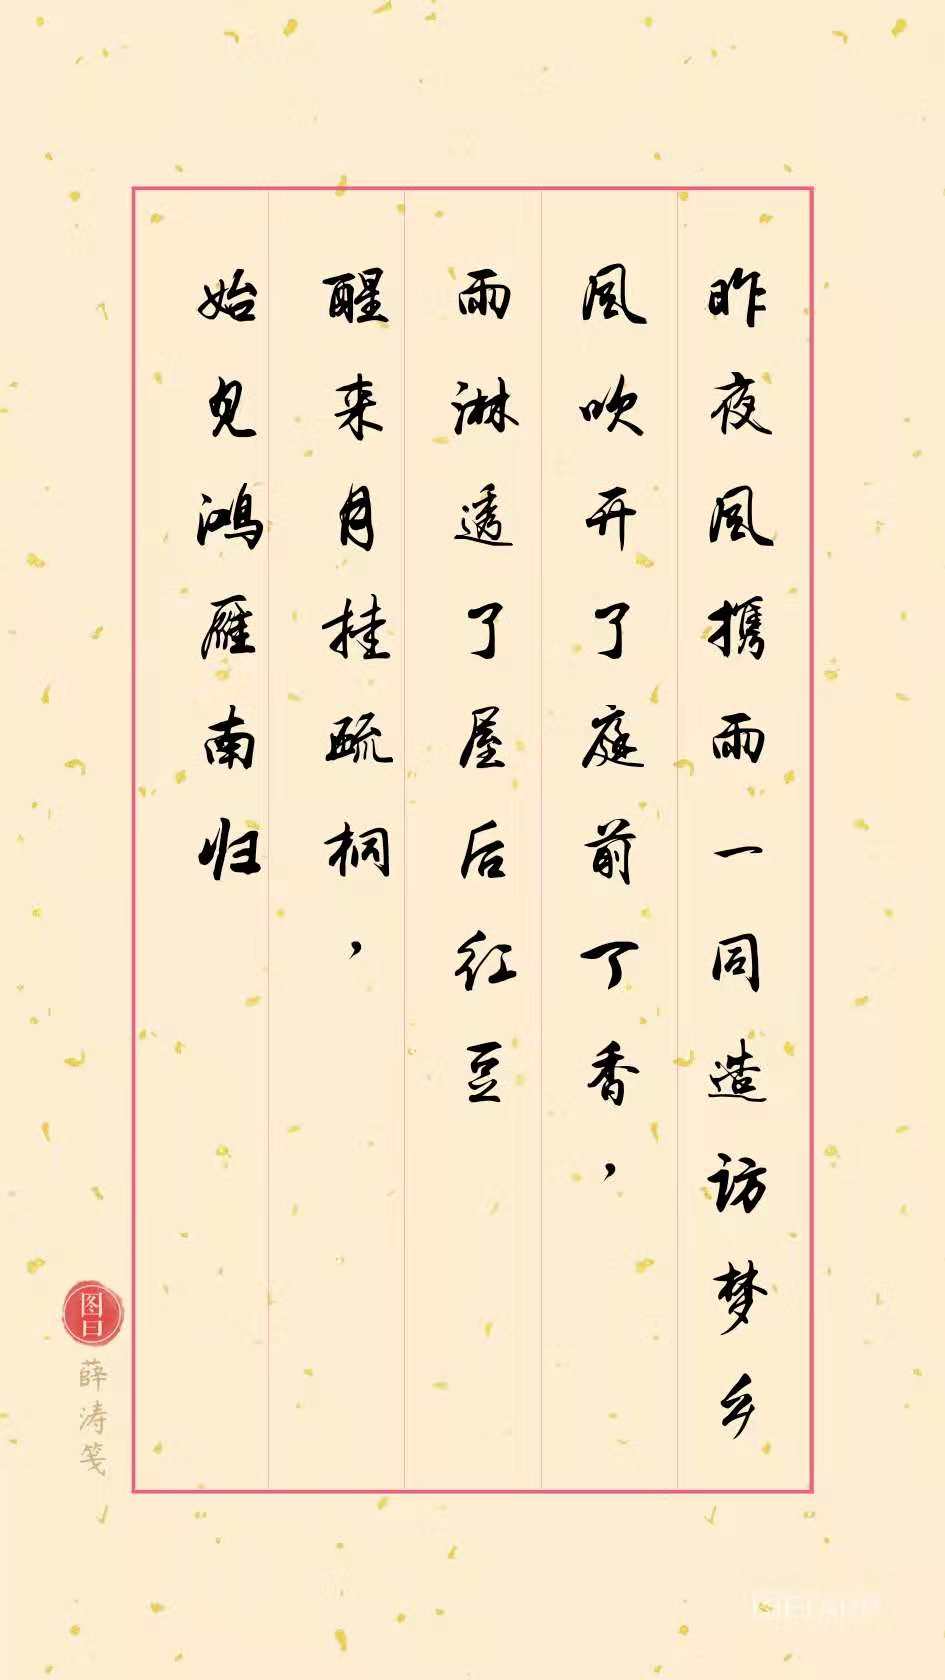 昨夜风携雨一同造访梦乡
风吹开了庭前丁香，
雨淋透了屋后红豆
醒来月挂疏桐，
始见鸿雁南归
图曰
薛涛笺